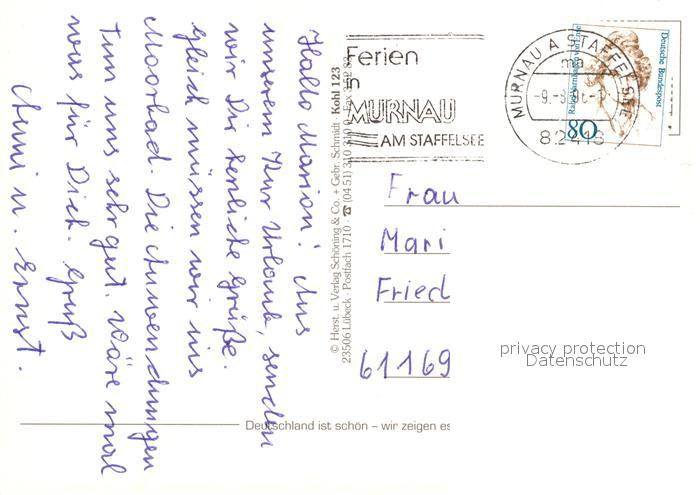 Hallo Marion! Aus
unserem Kur Urlaub, senden
wir Dir herzliche Grüße.
Gleich müssen wir ins
Moorbad. Die Anwendungen
tun uns sehr gut. Wäre mal
was für Dich. Gruß
Anni u. Ernst.
© Herst. u. Verlag Schöning & Co. + Gebr. Schmidt
23506 Lübeck · Postfach 1710 · ☎ (04 51) 3 10 3
Kohl 123
Ferien
in
MURNAU
AM STAFFELSEE
MURNAU A STAFFELSEE
ma
-9.-8.
Deutsche Bundespost
Rahel Varnhagen von Ense
80
Frau
Mari
Fried
61169
privacy protection
Datenschutz
Deutschland ist schön – wir zeigen es